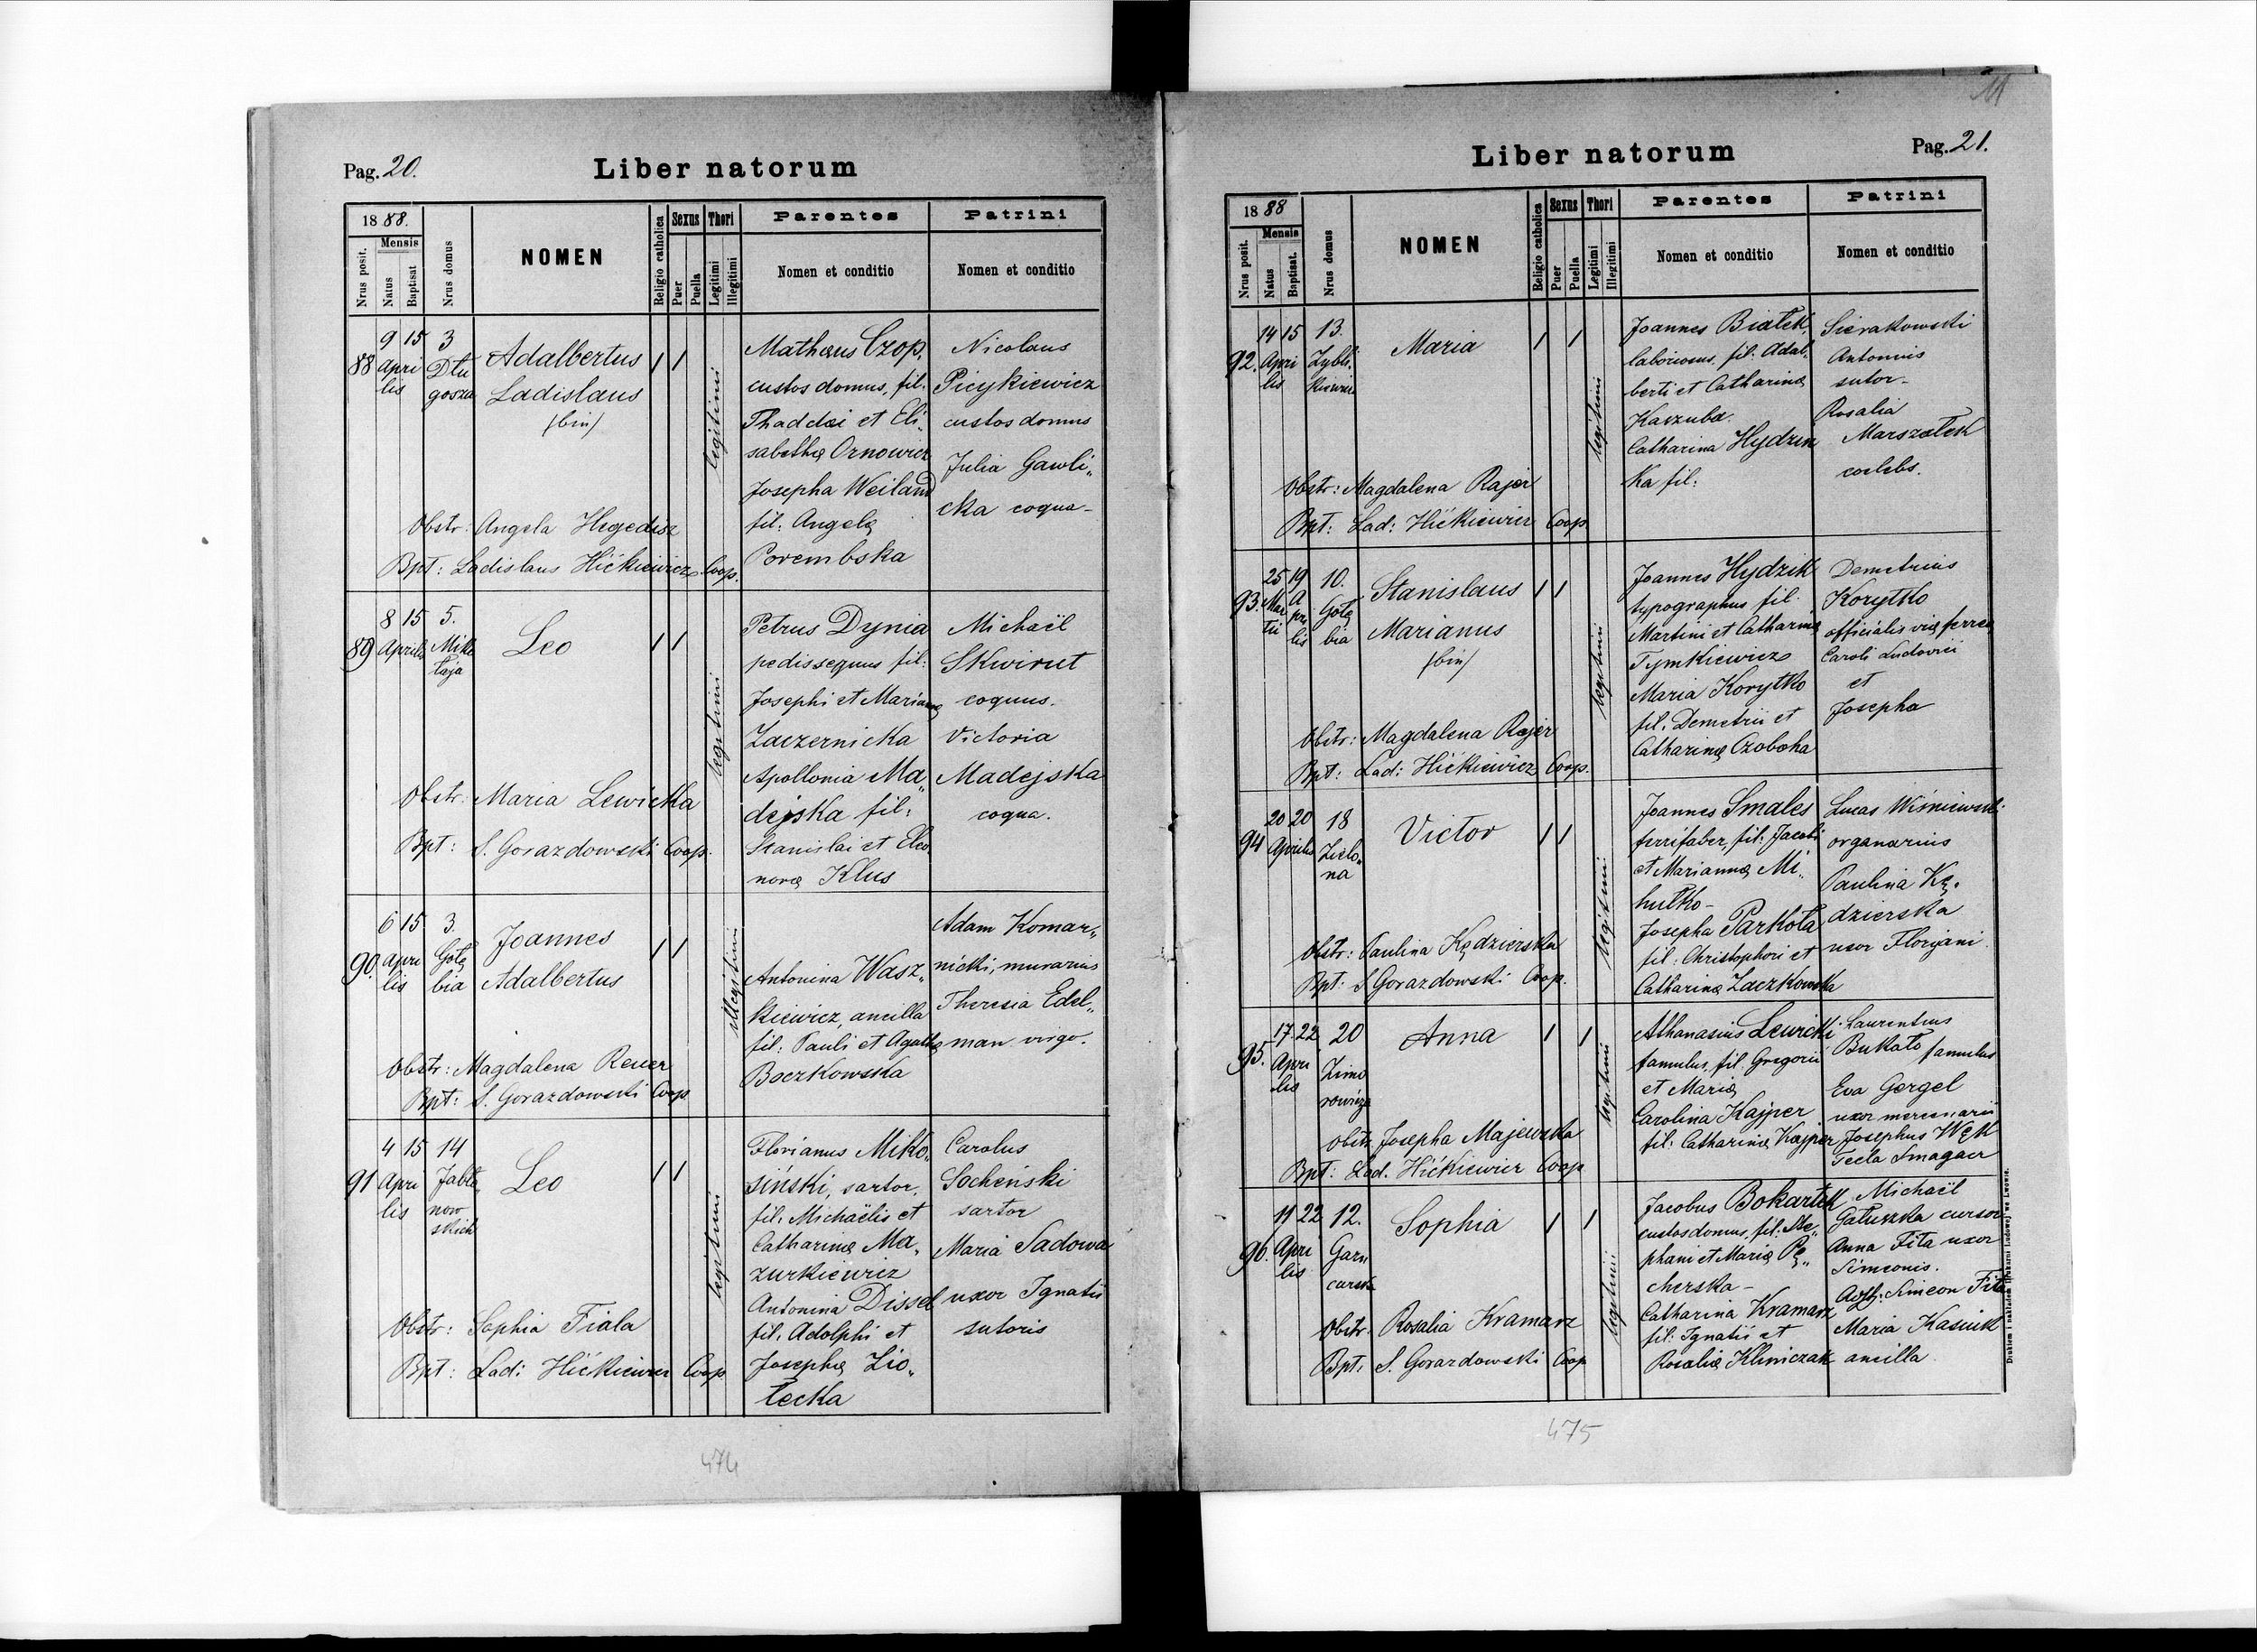 Pag. 20.
Liber natorum
1888.
Mensis
Nrus posit.
Natus
Baptisat
Nrus domus
NOMEN
Religio catholica
Sexus
Puer
Puella
Thori
Legitimi
Illegitimi
Parentes
Nomen et conditio
Patrini
Nomen et conditio
88
9 15
Apri
lis
3
Dłu
gosza
Adalbertus
Ladislaus
/bin/
legitimi
Obstr: Angela Hegedisz
Bpt: Ladislaus Hićkiewicz Coop.
Mathæus Czop,
custos domus, fil.
Thaddæi et Eli„
sabethę Ornowicz
Josepha Weiland
fil: Angelę
Porembska
Nicolaus
Picykiewicz
custos domus
Julia Gawli„
cka coqua-
89
8 15
Aprilis
5.
Miko
łaja
Leo
legitimi
Obstr: Maria Lewicka
Bpt: S. Gorazdowski Coop.
Petrus Dynia
pedissequus fil:
Josephi et Mariannę
Zaczernicka
Apollonia Ma„
dejska fil:
Stanislai et Eleo
norę Klus
Michaël
Skwirut
coquus.
Victoria
Madejska
coqua.
90.
6 15
Apri
lis
3.
Gołę
bia
Joannes
Adalbertus
illegitimi
Obstr: Magdalena Reuer
Bpt: S. Gorazdowski Coop
Antonina Wasz„
kiewicz, ancilla
fil: Pauli et Agathę
Boczkowska
Adam Komar„
nicki, murarius
Theresia Edel„
man virgo.
91
4 15
Apri
lis
14
Jabło
now
skich
Leo
legitimi
Obstr: Sophia Fiala
Bpt: Lad: Hićkiewicz Coop
Florianus Miko„
siński, sartor,
fil. Michaëlis et
Catharinę Ma„
zurkiewicz
Antonina Dissel
fil. Adolphi et
Josephę Zio„
łecka
Carolus
Socheński
sartor
Maria Sadowa
uxor Ignatii
sutoris
474
Pag. 21.
Liber natorum
1888
Mensis
Nrus posit.
Natus
Baptisat.
Nrus domus
NOMEN
Religio catholica
Sexus
Puer
Puella
Thori
Legitimi
Illegitimi
Parentes
Nomen et conditio
Patrini
Nomen et conditio
92.
14 15
Apri
lis
13.
Zybli
kiewicza
Maria
legitimi
Obstr: Magdalena Rajer
Bpt: Lad: Hićkiewicz Coop
Joannes Białek,
laboriosus, fil: Adal„
berti et Catharinę
Kaszuba.
Catharina Hydzik
ka fil:
Sierakowski
Antonius
sutor-
Rosalia
Marszałek
coelebs.
93.
25 19
Mar
tii
A
pri
lis
10.
Gołę
bia
Stanislaus
Marianus
/bin/
legitimi
Obstr: Magdalena Rajer
Bpt: Lad: Hićkiewicz Coop.
Joannes Hydzik
typographus fil.
Martini et Catharinę
Tymkiewicz
Maria Korytko
fil. Demetrii et
Catharinę Czoboha
Demetrius
Korytko
officialis vię ferreę
Caroli Ludovici
et
Josepha
94
20 20
Aprilis
18
Zielo„
na
Victor
legitimi
Obstr: Paulina Kędzierska
Bpt: S Gorazdowski Coop.
Joannes Smales
ferrifaber, fil: Jacobi
et Mariannę Mi„
hułko-
Josepha Parkoła
fil: Christophori et
Catharinę Zaczkowska
Lucas Wiśniewski
organarius
Paulina Kę„
dzierska
uxor Floryani
95.
17 22
Apri
lis
20
Zimo
rowicza
Anna
legitimi
Obstr. Josepha Majewska
Bpt: Lad. Hićkiewicz Coop
Athanasius Lewicki
famulus, fil. Gregorii
et Marię
Carolina Kajper
fil: Catharinę Kajper
Laurentius
Bukało famulus
Eva Gergel
uxor mercenarii
Josephus Węk
Tecla Smagacz
96.
11 22
Apri
lis
12.
Garn
carska
Sophia
legitimi
Obstr. Rosalia Kramarz
Bpt. S. Gorazdowski Coop
Jacobus Bokartek
custos domus, fil. Ste„
phani et Marię Pę„
cherska-
Catharina Kramarz
fil: Ignatii et
Rosalię Kliniczak
Michaël
Gałuszka cursor
Anna Fita uxor
Simeonis.
Simeon Fita
Maria Kasiuk
ancilla
475